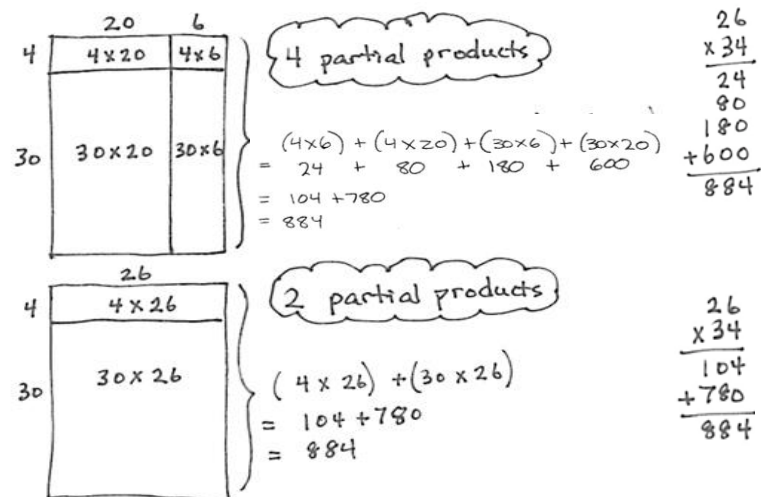 20 6
4 4 x 20 4 x 6
30 30 x 20 30 x 6
4 partial products
(4x6) + (4x20) + (30x6) + (30x20)
= 24 + 80 + 180 + 600
= 104 + 780
= 884
26
x 34
24
80
180
+600
884
26
4 4 x 26
30 30 x 26
2 partial products
(4 x 26) + (30 x 26)
= 104 + 780
= 884
26
x 34
104
+780
884